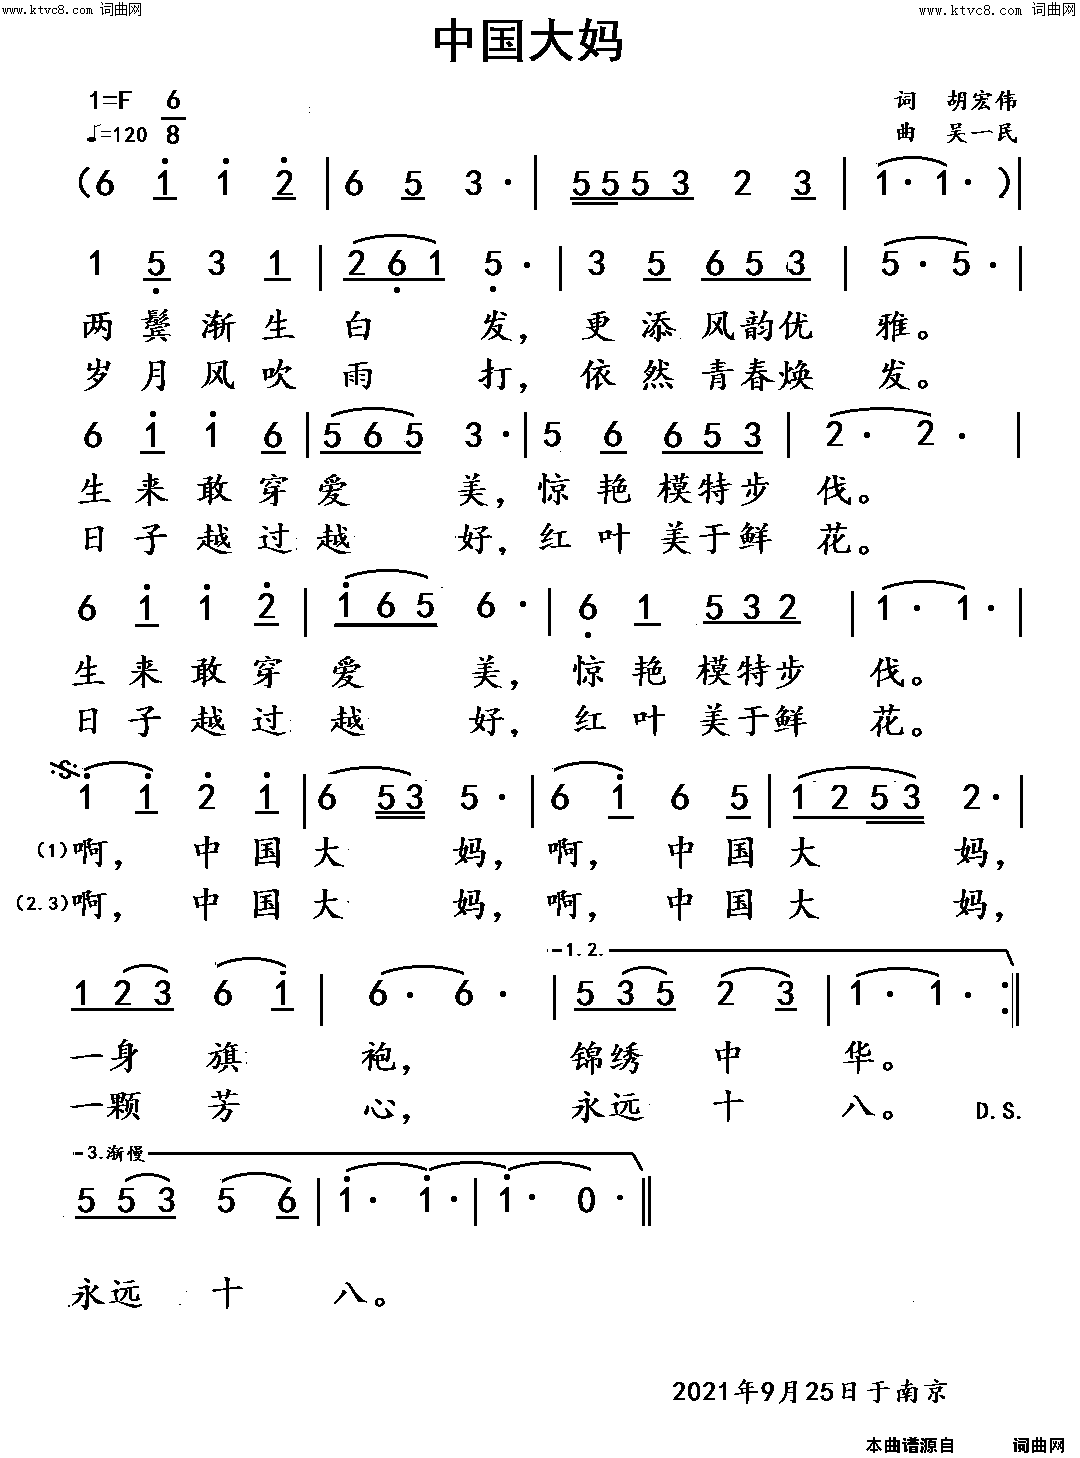 www.ktvc8.com 词曲网 www.ktvc8.com 词曲网
中国大妈
1=F 6/8 词 胡宏伟
♩=120 曲 吴一民
(6 1̇ 1̇ 2̇ | 6 5 3· | 5553 2 3 | 1· 1· )|
1 5̣ 3 1 | 2 6̣ 1 5̣· | 3 5 6 5 3 | 5· 5· |
两鬓渐生白 发，更添风韵优 雅。
岁月风吹雨 打，依然青春焕 发。
6 1̇ 1̇ 6 | 5 6 5 3· | 5 6 6 5 3 | 2· 2· |
生来敢穿爱 美，惊艳模特步 伐。
日子越过越 好，红叶美于鲜 花。
6 1̇ 1̇ 2̇ | 1̇ 6 5 6· | 6̣ 1 5 3 2 | 1· 1· |
生来敢穿爱 美，惊艳模特步 伐。
日子越过越 好，红叶美于鲜 花。
1̇ 1̇ 2̇ 1̇ | 6 53 5· | 6 1̇ 6 5 | 1 2 53 2· |
(1)啊，中国大 妈，啊，中国大 妈，
(2.3)啊，中国大 妈，啊，中国大 妈，
1.2.
1 2 3 6 1̇ | 6· 6· | 5 3 5 2 3 | 1· 1· :||
一身 旗 袍， 锦绣 中 华。
一颗 芳 心， 永远 十 八。 D.S.
3.渐慢
5 5 3 5 6 | 1̇· 1̇· | 1̇· 0· ||
永远 十 八。
2021年9月25日于南京
本曲谱源自 词曲网